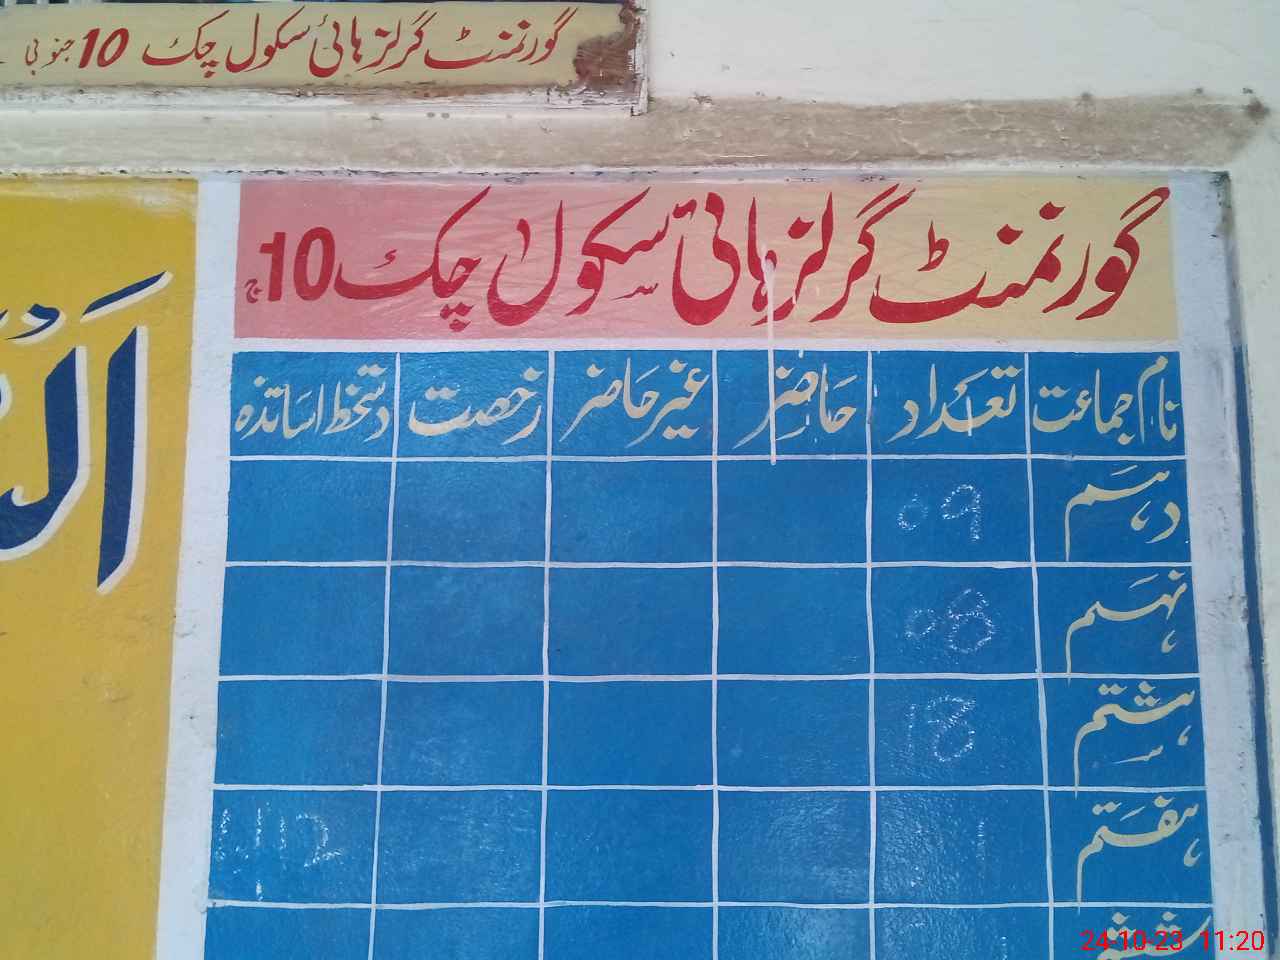 گورنمنٹ گرلز ہائی سکول چک 10 جنوبی
گورنمنٹ گرلز ہائی سکول چک 10 ج
نام جماعت تعداد حاضر غیر حاضر رخصت دستخط اساتذہ
دہم 09
نہم 08
ہشتم 18
ہفتم
ششم
24-10-23 11:20